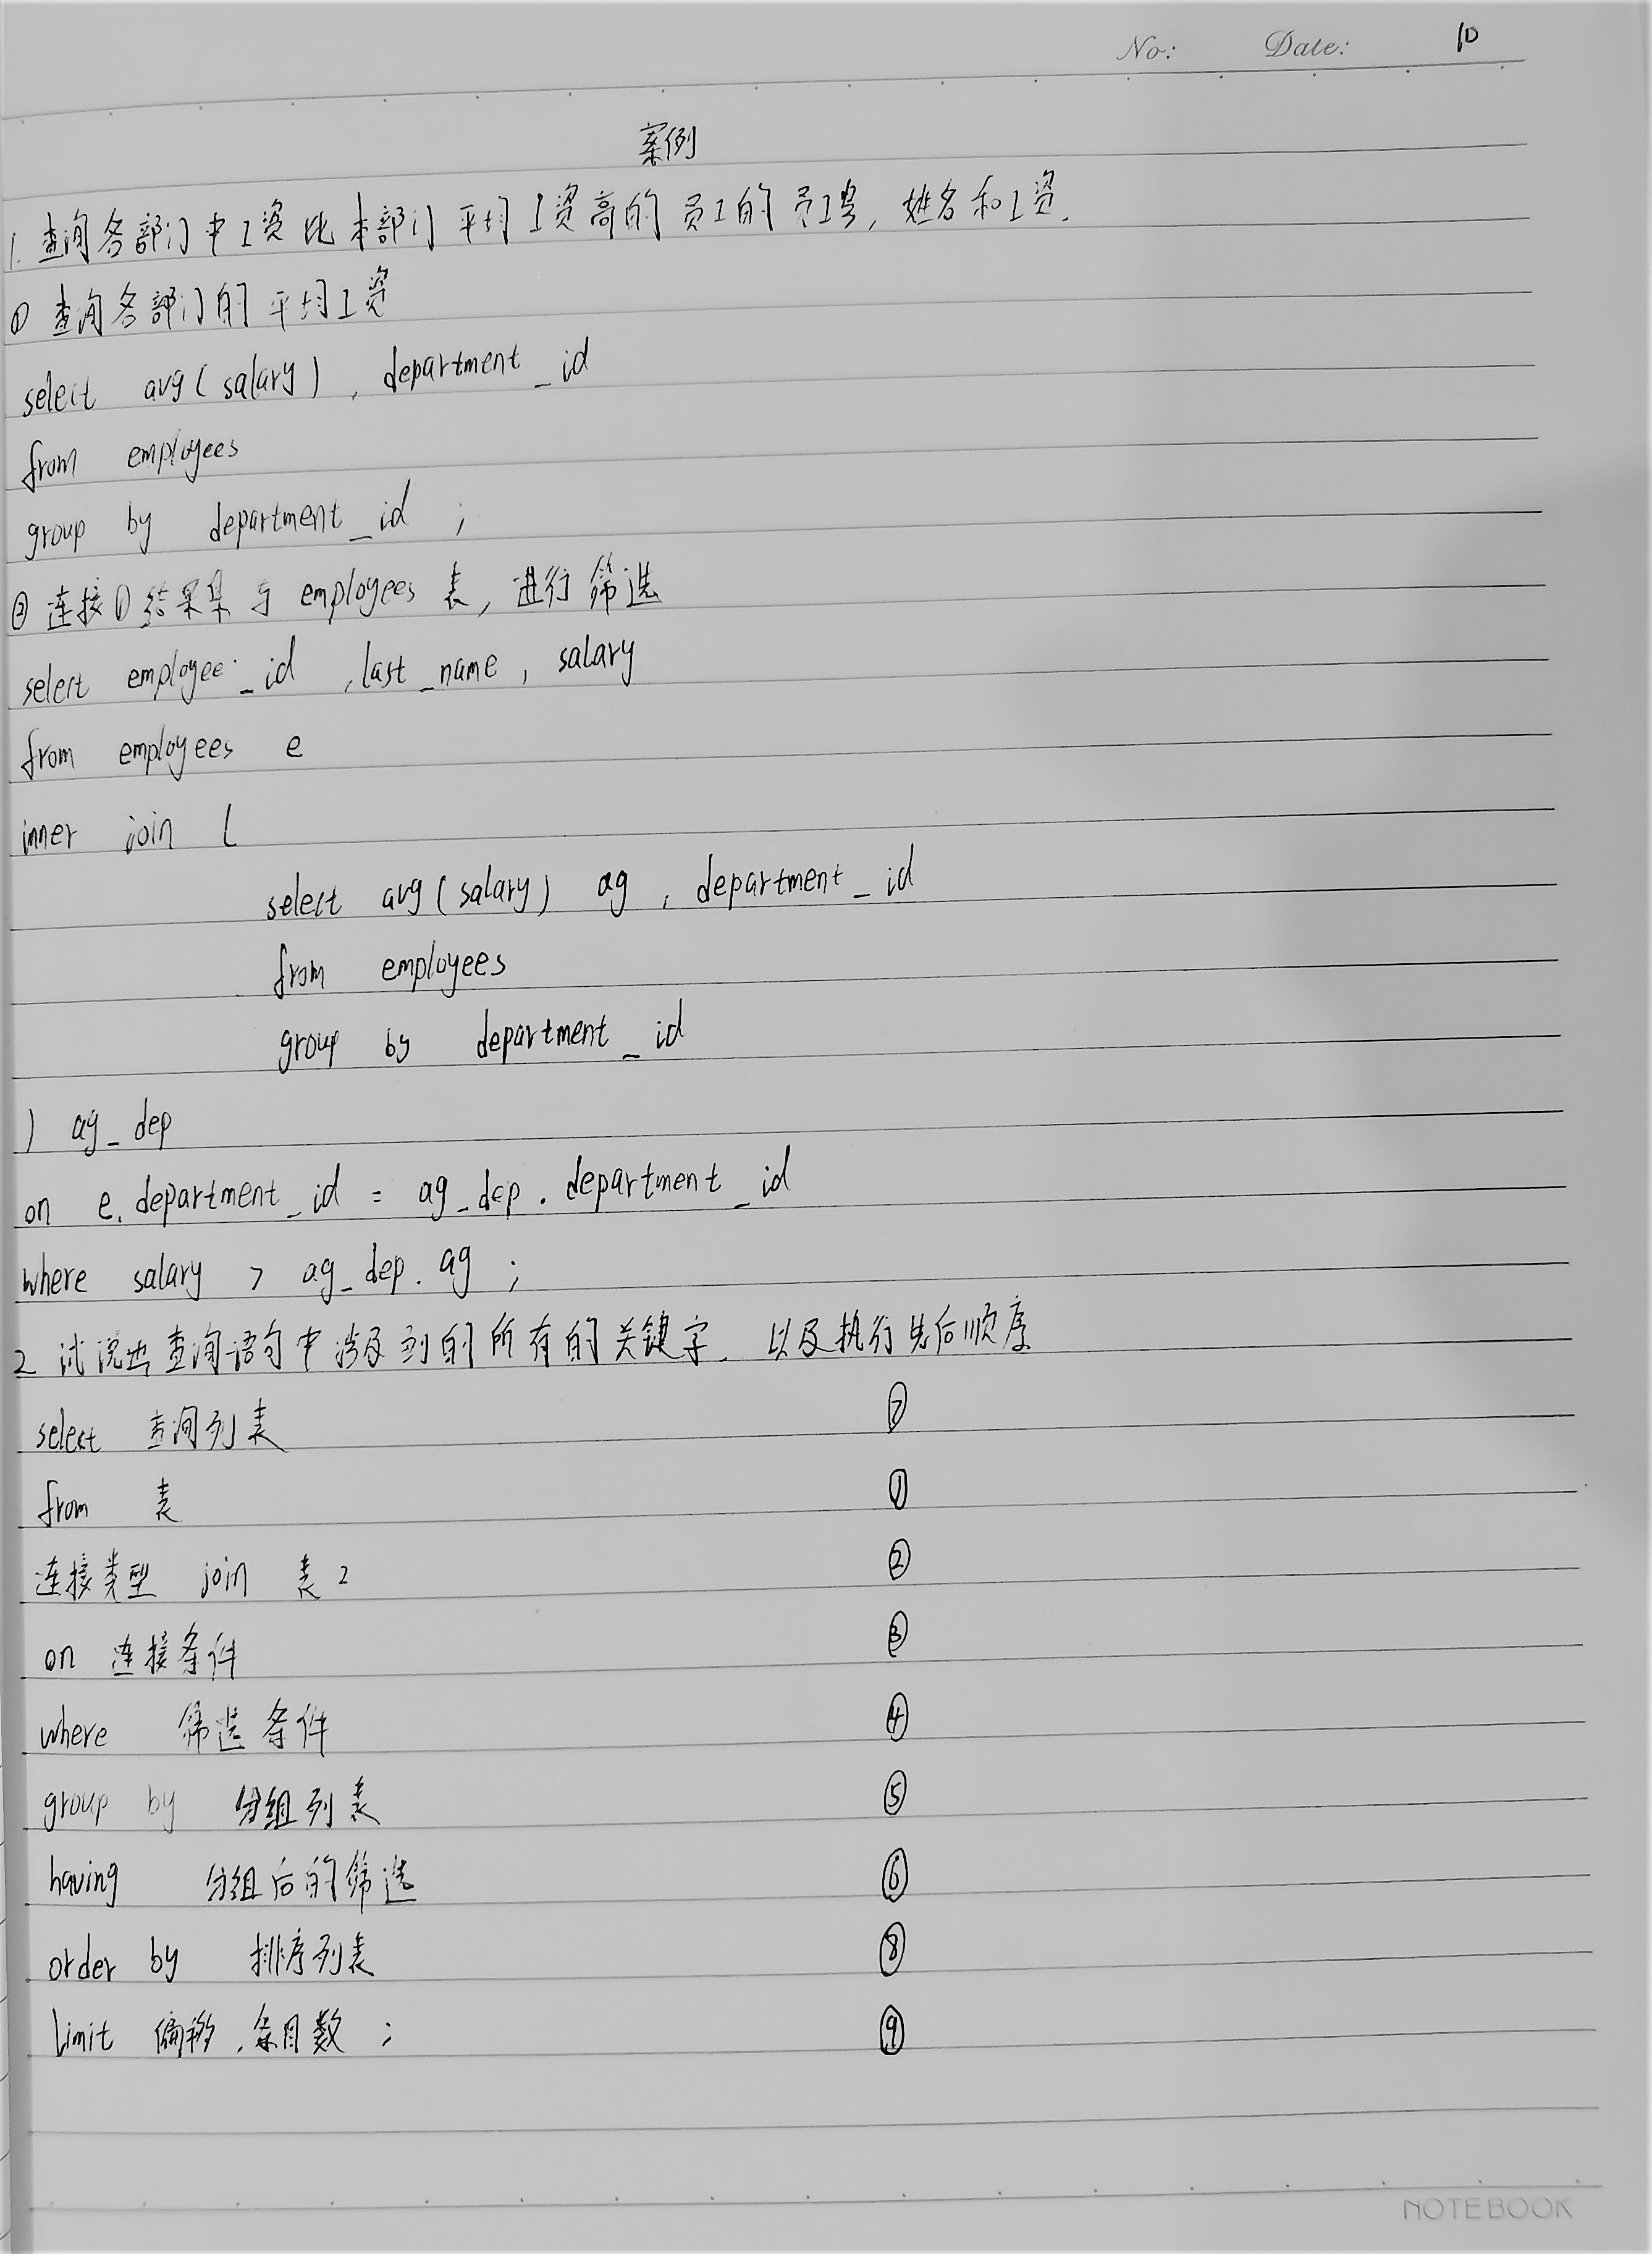 No: Date: 10
案例
1. 查询各部门中工资比本部门平均工资高的员工的员工号, 姓名和工资.
① 查询各部门的平均工资
select avg(salary) , department_id
from employees
group by department_id ;
② 连接①结果集与employees表, 进行筛选
select employee_id , last_name , salary
from employees e
inner join (
select avg(salary) ag , department_id
from employees
group by department_id
) ag_dep
on e.department_id = ag_dep.department_id
where salary > ag_dep.ag ;
2 试说出查询语句中涉及到的所有的关键字, 以及执行先后顺序
select 查询列表 ⑦
from 表 ①
连接类型 join 表2 ②
on 连接条件 ③
where 筛选条件 ④
group by 分组列表 ⑤
having 分组后的筛选 ⑥
order by 排序列表 ⑧
limit 偏移, 条目数 ; ⑨
NOTEBOOK